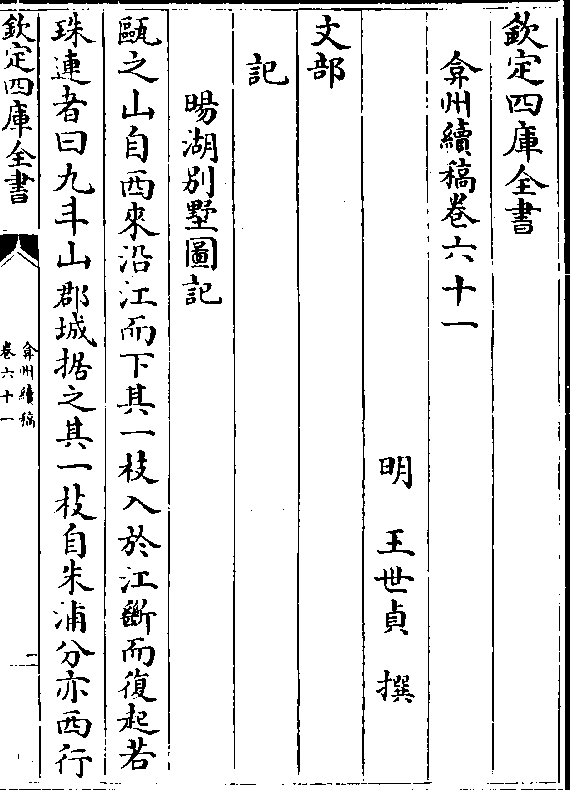 欽定四庫全書
弇州續稿卷六十一
明 王世貞 撰
文部
記
暘湖別墅圖記
甌之山自西來沿江而下其一枝入於江斷而復起若
珠連者曰九斗山郡城据之其一枝自朱浦分亦西行
欽定四庫全書
弇州續稿
卷六十一
一